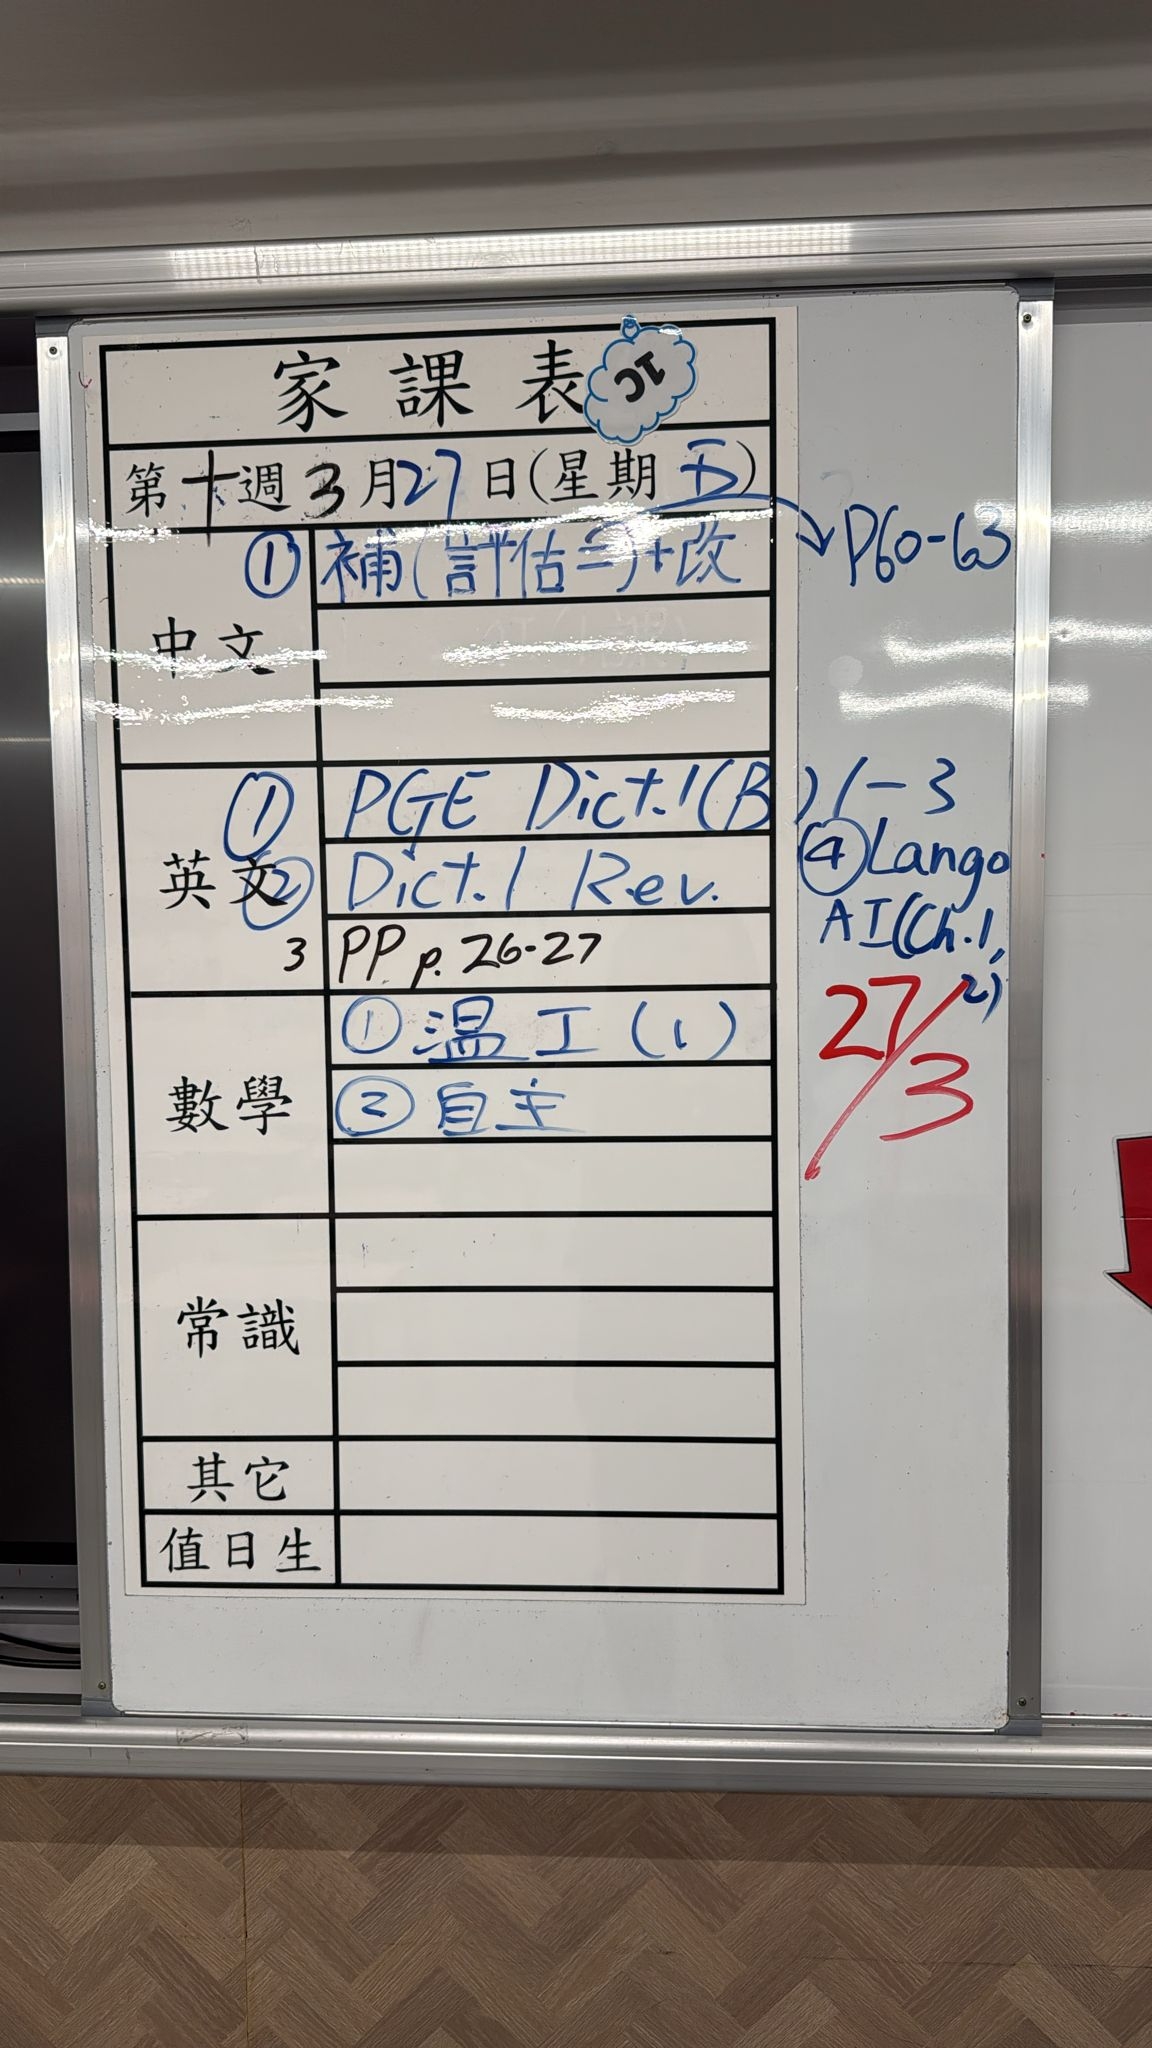 家課表
1C
第十週3月27日(星期五)
中文
① 補(評估二)+改 P60-63
英文
① PGE Dict.1(B) 1-3
② Dict.1 Rev.
3 PP p.26-27
④ Lango
AI(Ch.1,
2)
27/3
數學
① 温工(1)
② 自主
常識
其它
值日生